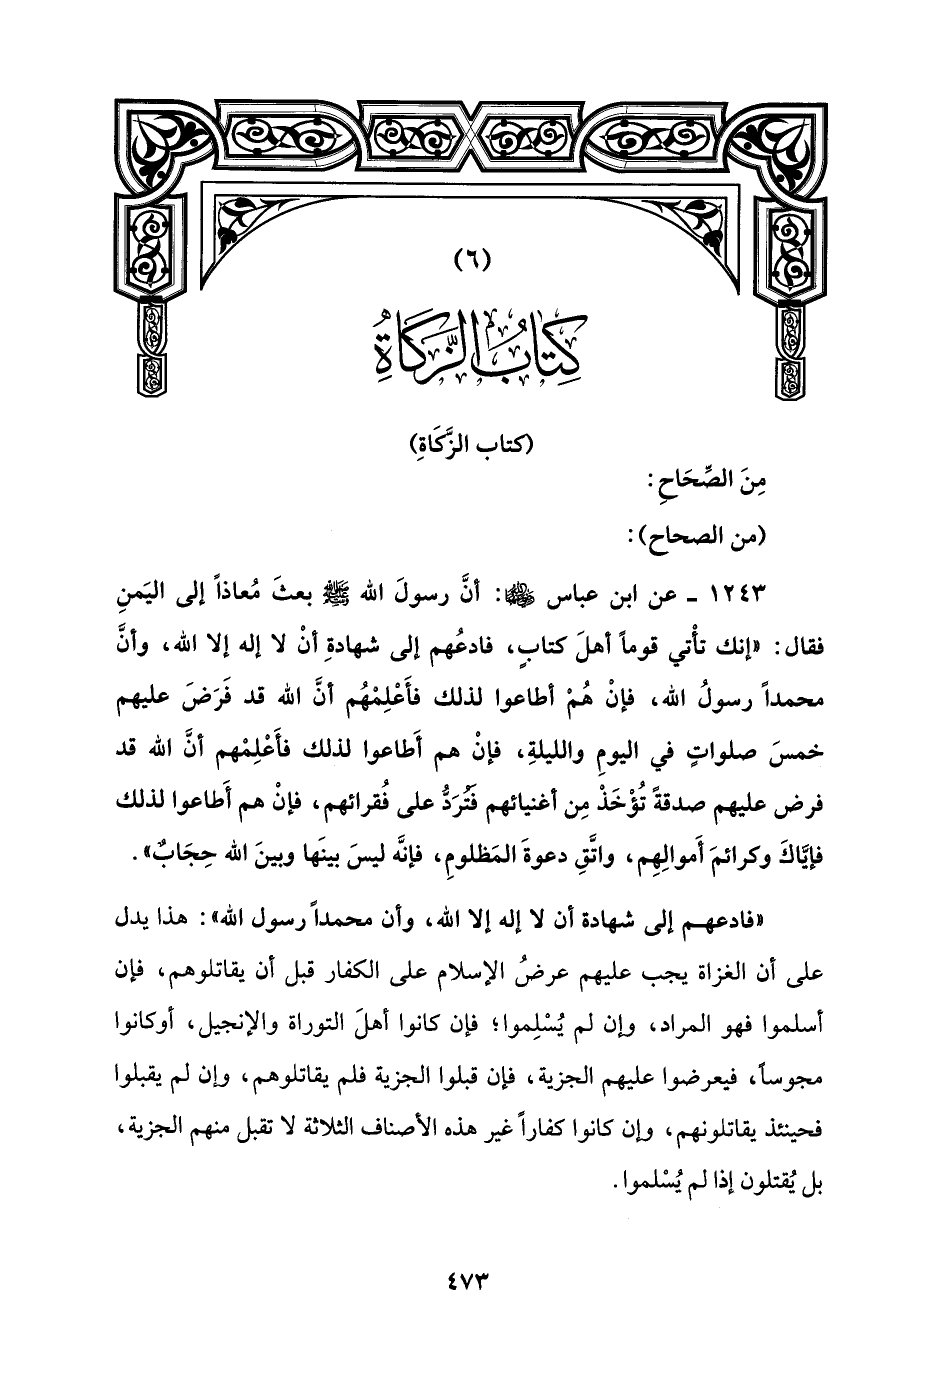 (٦)
كِتَابُ الزَّكَاةِ
(كتاب الزَّكَاةِ)
مِنَ الصِّحَاحِ:
(من الصحاح):
١٢٤٣ ـ عن ابن عباس ﵄: أنَّ رسولَ الله ﷺ بعثَ مُعاذاً إلى اليَمنِ
فقال: «إنك تأْتي قوماً أهلَ كتابٍ، فادعُهم إلى شهادةِ أنْ لا إله إلا الله، وأنَّ
محمداً رسولُ الله، فإنْ هُمْ أطاعوا لذلك فأَعْلِمْهُم أنَّ الله قد فَرَضَ عليهم
خمسَ صلواتٍ في اليومِ والليلةِ، فإنْ هم أَطاعوا لذلك فأَعْلِمْهم أنَّ الله قد
فرض عليهم صدقةً تُؤْخَذْ مِن أغنيائهم فَتُرَدُّ على فُقرائهم، فإنْ هم أَطاعوا لذلك
فإيَّاكَ وكرائمَ أَموالِهِم، واتَّقِ دعوةَ المَظلومِ، فإنَّه ليسَ بينَها وبينَ الله حِجَابٌ».
«فادعهم إلى شهادة أن لا إله إلا الله، وأن محمداً رسول الله»: هذا يدل
على أن الغزاة يجب عليهم عرضُ الإسلام على الكفار قبل أن يقاتلوهم، فإن
أسلموا فهو المراد، وإن لم يُسْلِموا؛ فإن كانوا أهلَ التوراة والإنجيل، أوكانوا
مجوساً، فيعرضوا عليهم الجزية، فإن قبلوا الجزية فلم يقاتلوهم، وإن لم يقبلوا
فحينئذ يقاتلونهم، وإن كانوا كفاراً غير هذه الأصناف الثلاثة لا تقبل منهم الجزية،
بل يُقتلون إذا لم يُسْلموا.
٤٧٣